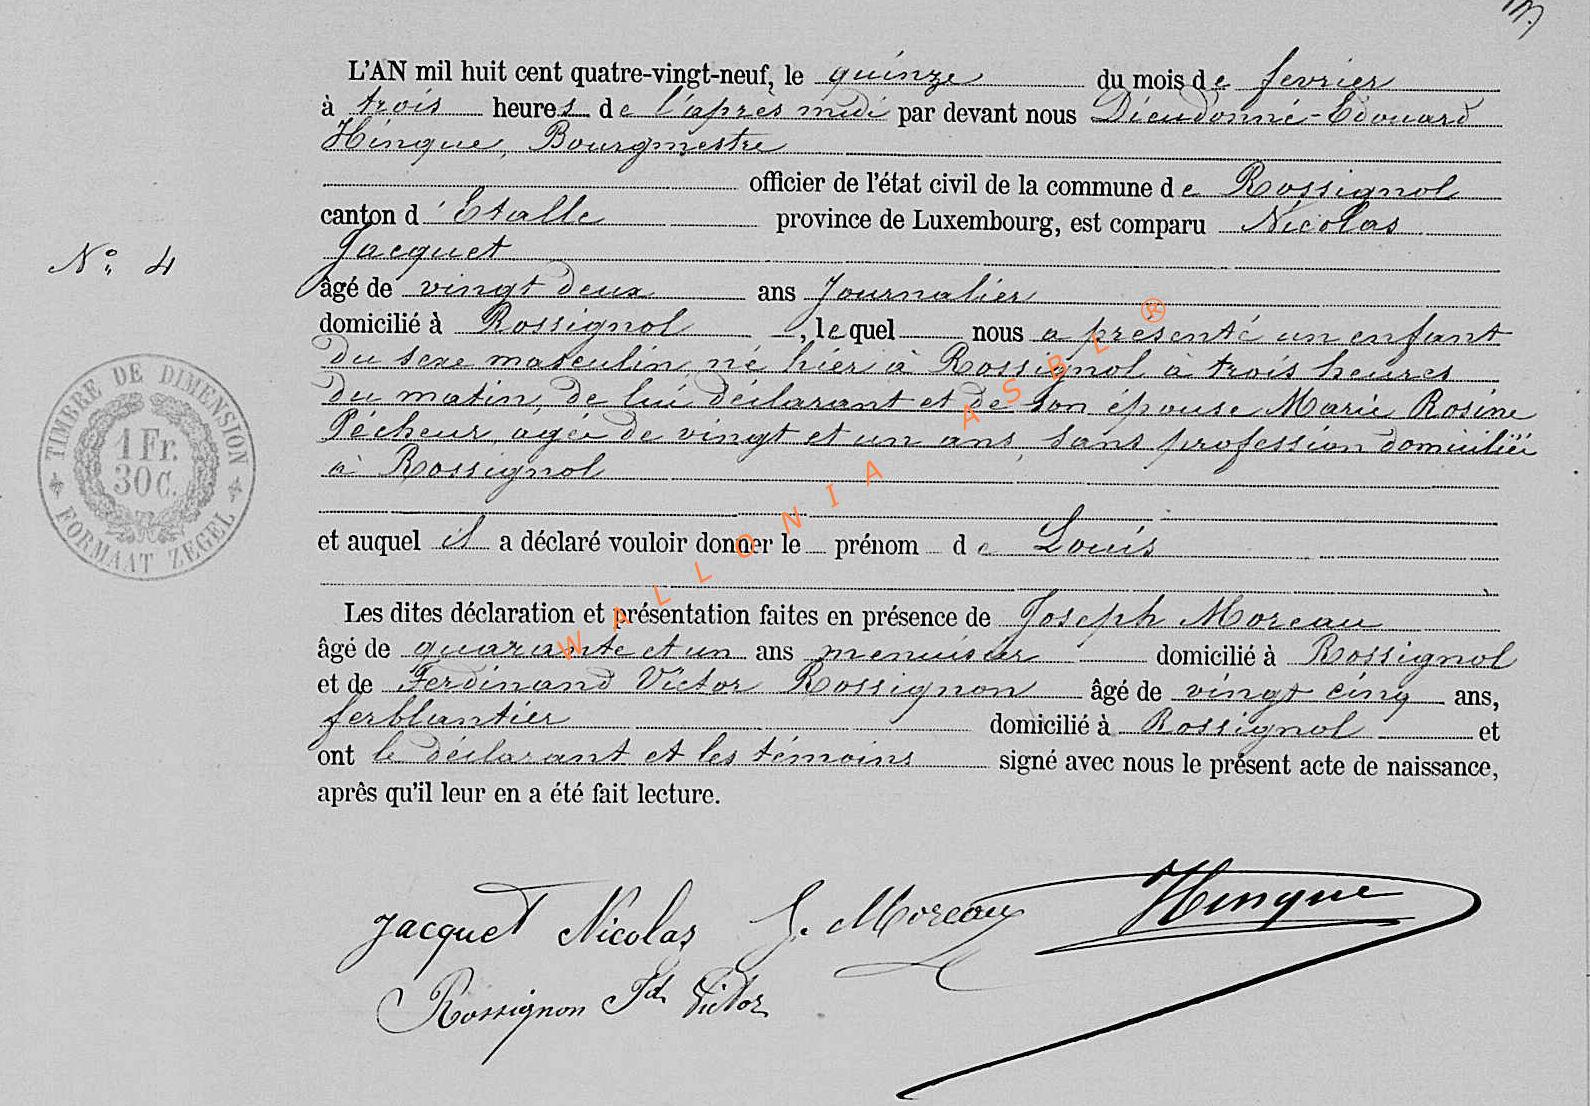 L'AN mil huit cent quatre-vingt-neuf, le quinze du mois de fevrier
à trois heures de l'après midi par devant nous Dieudonné-Edouard
Hinque, Bourgmestre
officier de l'état civil de la commune de Rossignol
canton d'Etalle province de Luxembourg, est comparu Nicolas
Jacquet
N° 4
âgé de vingt deux ans Journalier
domicilié à Rossignol, lequel nous a présenté un enfant
du sexe masculin, né hier à Rossignol à trois heures
du matin, de lui déclarant et de son épouse Marie Rosine
Pécheur agée de vingt et un ans, sans profession domiciliée
à Rossignol
et auquel il a déclaré vouloir donner le prénom de Louis
Les dites déclaration et présentation faites en présence de Joseph Moreau
âgé de quarante et un ans menuisier domicilié à Rossignol
et de Ferdinand Victor Rossignon âgé de vingt cinq ans,
ferblantier domicilié à Rossignol et
ont le déclarant et les témoins signé avec nous le présent acte de naissance,
après qu'il leur en a été fait lecture.
TIMBRE DE DIMENSION
1 Fr.
30 C.
FORMAAT ZEGEL
WALLONIA ASBL ®
Jacquet Nicolas J. Moreau Hinque
Rossignon Fd Victor